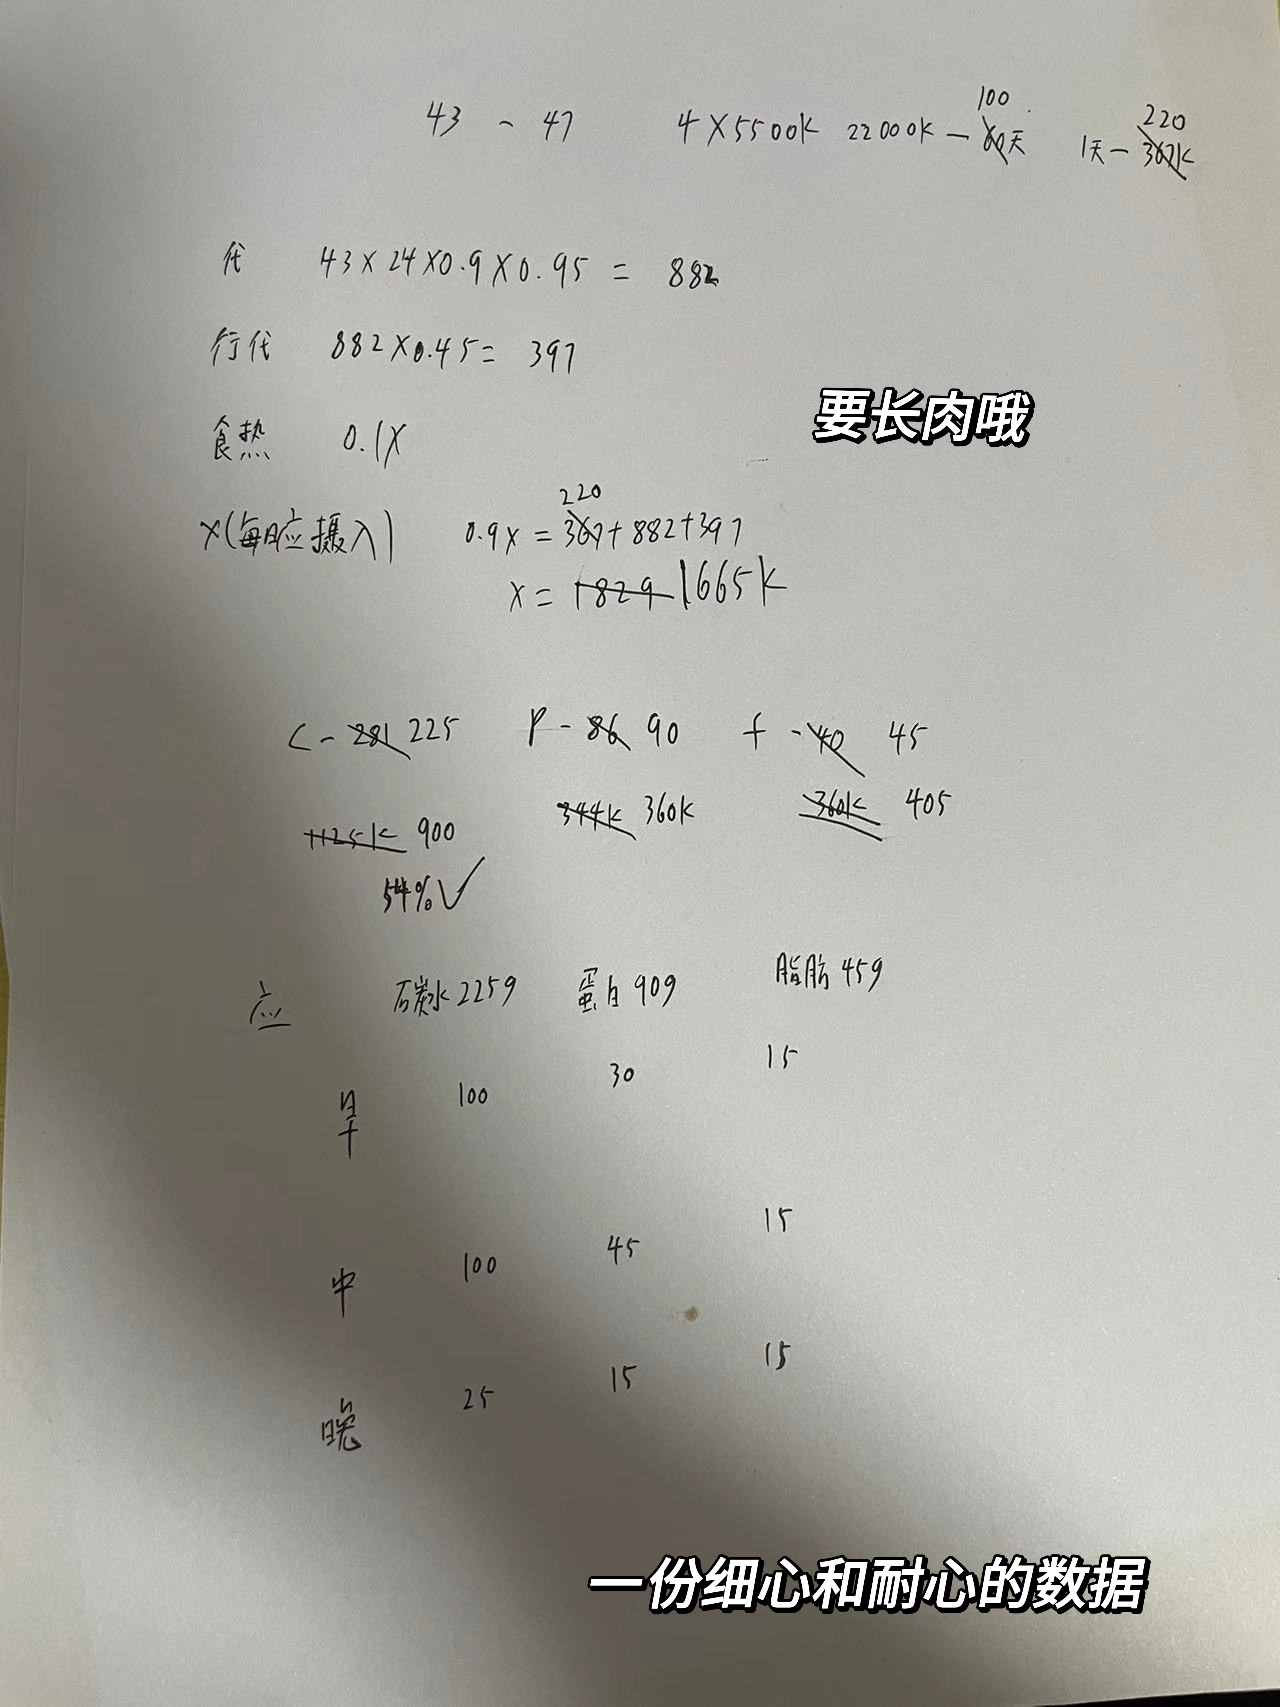 100 220
43 ~ 47 4×5500K 22000K — 60天 1天 — 367K
代 43×24×0.9×0.95 = 882
行代 882×0.45= 397
要长肉哦
食热 0.1X
220
X(每日应摄入) 0.9X = 367+882+397
X = 1829 1665K
C - 281 225 P - 86 90 f - 40 45
1125K 900 344K 360K 360K 405
54%✓
应 碳水225g 蛋白90g 脂肪45g
早 100 30 15
中 100 45 15
晚 25 15 15
一份细心和耐心的数据